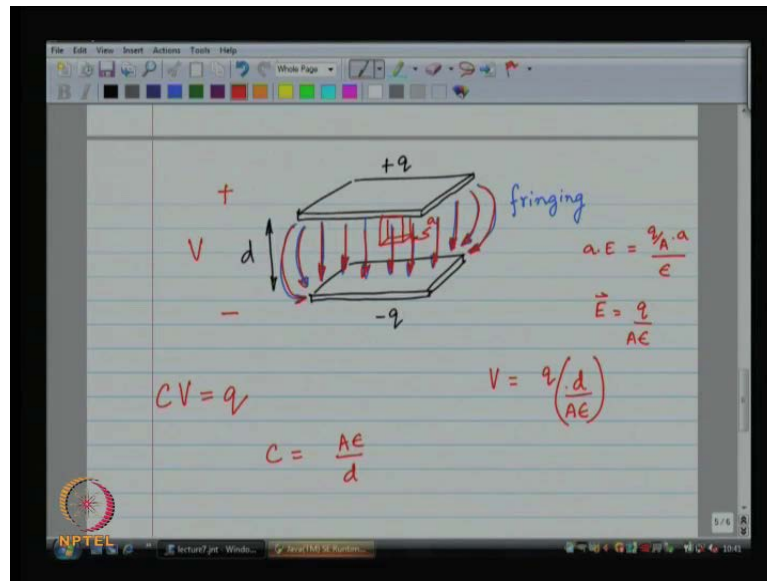 File Edit View Insert Actions Tools Help
Whole Page
B I
+q
+
fringing
a
V d
a.E = q/A . a / ε
E⃗ = q / Aε
−
-q
V = q(.d / Aε)
CV = q
C = Aε / d
5/6
NPTEL
lecture7.jnt - Windo...
Java(TM) SE Runtim...
10:41